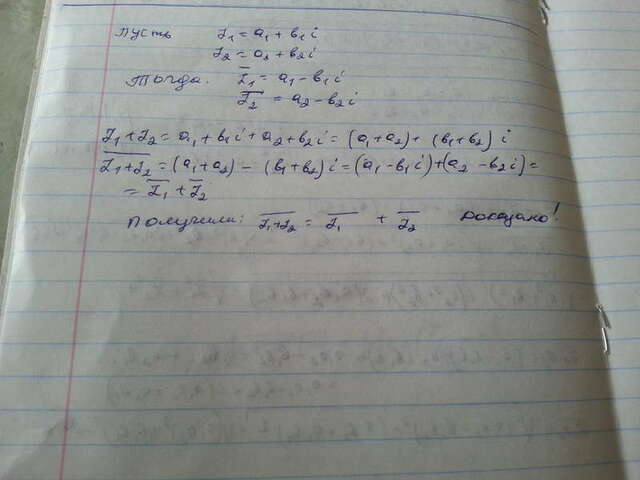 Пусть z₁ = a₁ + b₁i
z₂ = a₂ + b₂i
Тогда. z̅₁ = a₁ - b₁i
z̅₂ = a₂ - b₂i
z₁ + z₂ = a₁ + b₁i + a₂ + b₂i = (a₁ + a₂) + (b₁ + b₂) i
\overline{z₁ + z₂} = (a₁ + a₂) - (b₁ + b₂) i = (a₁ - b₁i) + (a₂ - b₂i) =
= z̅₁ + z̅₂
Получили: \overline{z₁ + z₂} = z̅₁ + z̅₂ Доказано!